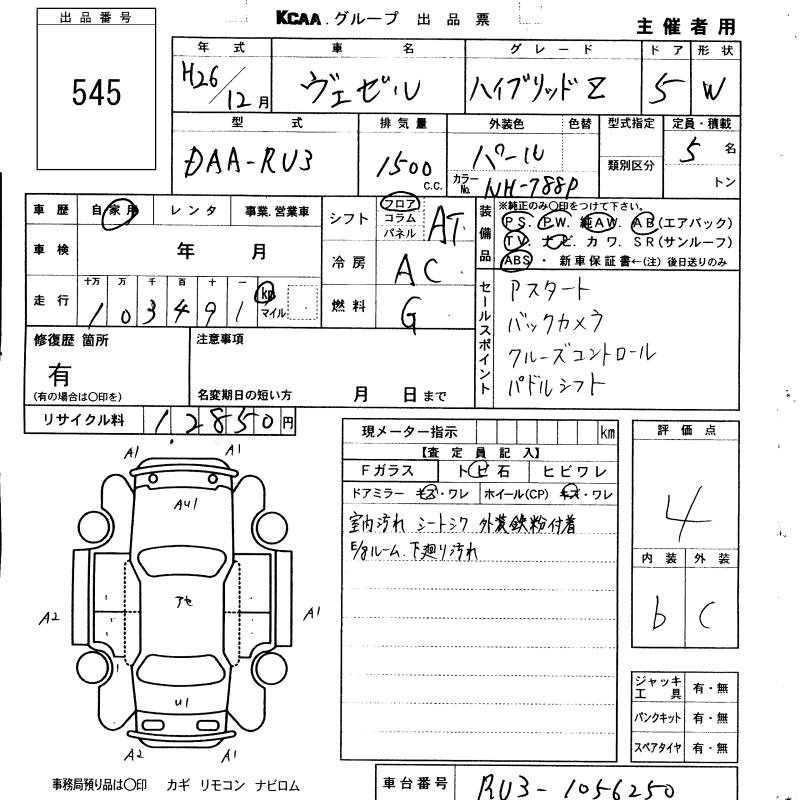 出品番号
KCAA.グループ 出品票
主催者用
545
年式 車名 グレード ドア 形状
H26/12月 ヴェゼル ハイブリッドZ 5 W
型式 排気量 外装色 色替 型式指定 定員・積載
DAA-RU3 1500 C.C. パール 類別区分 5名
カラーNo. NH-788P トン
車歴 自家用 レンタ 事業.営業車
車検 年 月
走行 十万 万 千 百 十 一
103491 km マイル
シフト フロア コラム パネル AT
冷房 AC
燃料 G
装備品
※純正のみ〇印をつけて下さい。
PS. PW. 純AW. AB(エアバック)
TV. ナビ. カワ. SR(サンルーフ)
ABS・ 新車保証書←(注) 後日送りのみ
セールスポイント
Pスタート
バックカメラ
クルーズコントロール
パドルシフト
修復歴 箇所
有
(有の場合は〇印を)
注意事項
名変期日の短い方 月 日まで
リサイクル料 12850円
現メーター指示 km
【査定員記入】
Fガラス トビ石 ヒビワレ
ドアミラー キズ・ワレ ホイール(CP) キズ・ワレ
室内汚れ シートシワ 外装鉄粉付着
E/gルーム.下廻り汚れ
評価点
4
内装 外装
b C
A1 A1
AU1
アセ
A2 A1
U1
A2 A1
ジャッキ工具 有・無
パンクキット 有・無
スペアタイヤ 有・無
事務局預り品は〇印 カギ リモコン ナビロム
車台番号 RU3-1056250